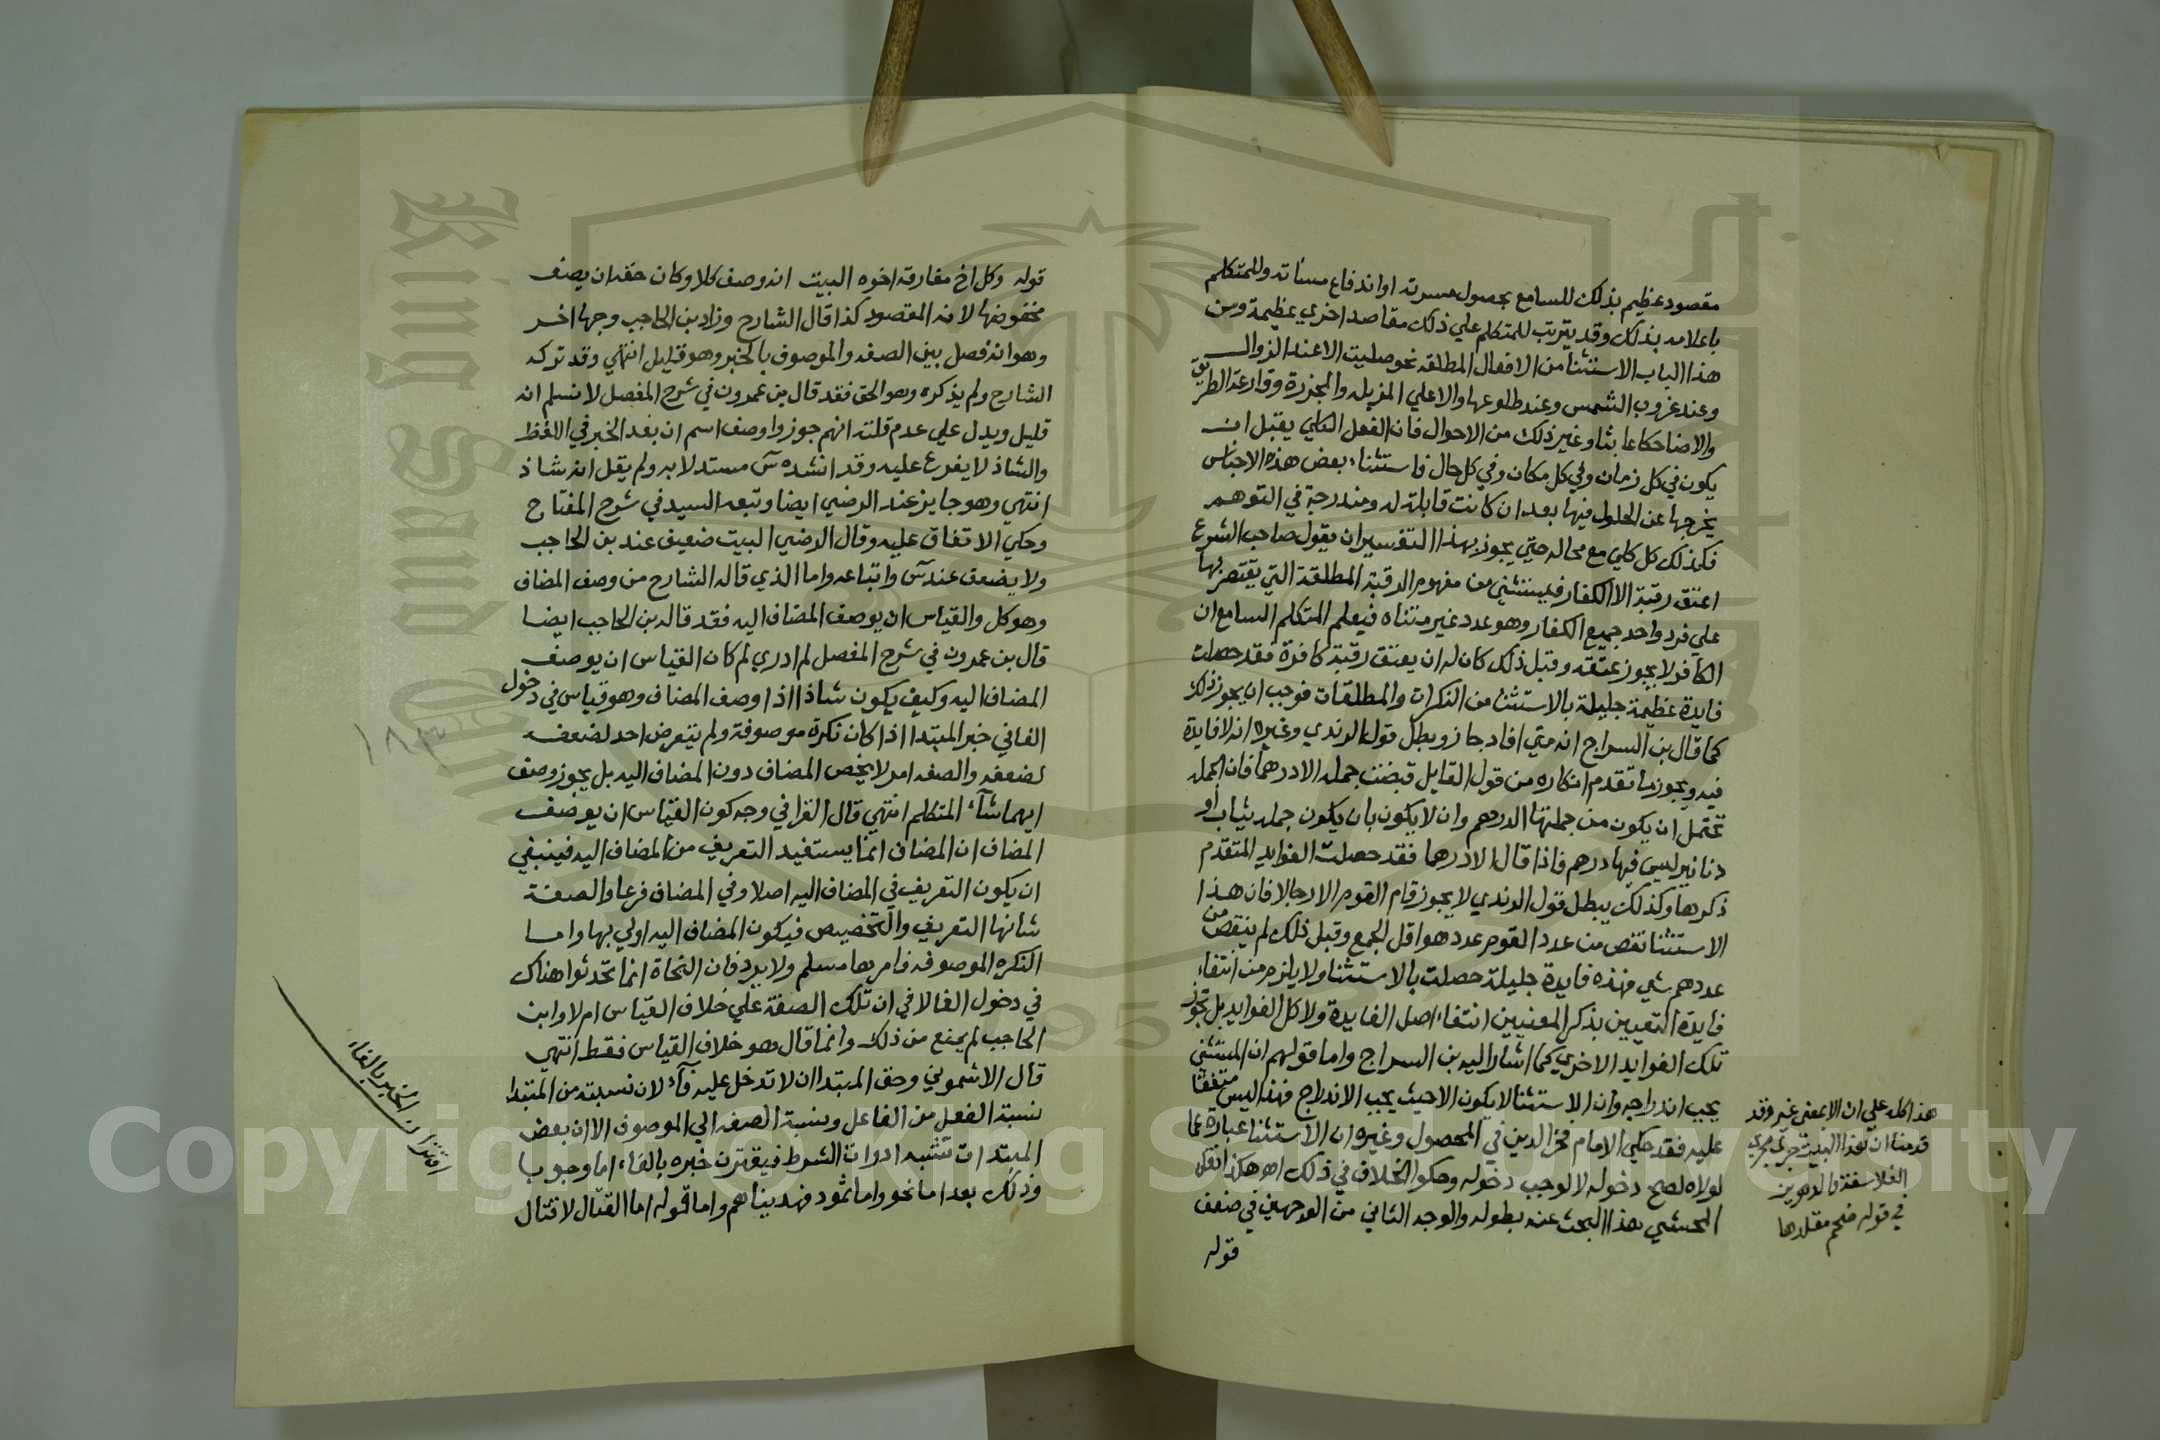 مقصود عظيم بذلك للسامع بحصول مسرته او اندفاع مساته وللمتكلم
باعلامه بذلك وقد يترتب للمتكلم علي ذلك مقاصد اخري عظيمة ومن
هذا الباب الاستثنا من الافعال المطلقه نحو صليت الا عند الزوال
وعند غروب الشمس وعند طلوعها والا علي المزبله والمجزرة وقارعة الطريق
والا ضاحكا عابثا وغير ذلك من الاحوال فان الفعل الكلي يقبل ان
يكون في كل زمان وفي كل مكان وفي كل حال فاستثناء بعض هذه الاجناس
يخرجها عن الحلول فيها بعد ان كانت قابلة له ومندرجة في التوهم
فكذلك كل كلي مع محاله حتي يجوز بهذا التفسير ان يقول صاحب الشرع
اعتق رقبة الا الكفار فيستثني من مفهوم الرقبة المطلقة التي يقتصر بها
علي فرد واحد جميع الكفار وهو عدد غير متناه فيعلم المتكلم السامع ان
الكافر لا يجوز عتقه وقبل ذلك كان له ان يعتق رقبة كافرة فقد حصلت
فايدة عظيمة جليلة بالاستثنا من النكرات والمطلقات فوجب ان يجوز ذلك
كما قال بن السراج انه متي افاد جاز وبطل قول الرندي وغيره انه لا فايدة
فيه ويجوز ما تقدم انكاره من قول القايل قبضت جمله الا درهما فان الجمله
تحتمل ان يكون من جملتها الدرهم وان لا يكون بان يكون جمله ثياب او
دنانير ليس فيها درهم فاذا قال الا درهما فقد حصلت الفوايد المتقدم
ذكرها وكذلك يبطل قول الرندي لا يجوز قام القوم الا رجالا فان هذا
الاستثنا نقص من عدد القوم عدد هو اقل الجمع وقبل ذلك لم ينقص من
عددهم شي فهذه فايدة جليلة حصلت بالاستثنا ولا يلزم من انتفاء
فايدة التعيين بذكر المعنيين انتفاء اصل الفايدة ولا كل الفوايد بل تجوز
تلك الفوايد الاخري كما اشار اليه بن السراج واما قولهم ان المستثني
يجب اندراجه وان الاستثنا لا يكون الا حيث يجب الاندراج فهذا ليس متفقا
عليه فقد حكي الامام فخر الدين في المحصول وغيره ان الاستثنا عبارة عما
لولاه لصح دخوله لا لوجب دخوله وحكوا الخلاف في ذلك اه هكذا نقل
المحشي هذا البحث عنه بطوله والوجه الثاني من الوجهين في ضعف
قوله
هذا كله علي ان الا بمعني غير وقد
قدمنا ان هذا البيت جري مجري
الفلاسفة
في قوله
قوله وكل اخ مفارقه اخوه البيت انه وصف كلا وكان حقه ان يصف
مخفوضها لانه المقصود كذا قال الشارح وزاد بن الحاجب وجها اخر
وهو انه فصل بين الصفه والموصوف بالخبر وهو قليل انتهي وقد تركه
الشارح ولم يذكره وهو الحق فقد قال بن عمرون في شرح المفصل لا نسلم انه
قليل ويدل علي عدم قلته انهم جوزوا وصف اسم ان بعد الخبر في اللفظ
والشاذ لا يفرع عليه وقد انشده س مستدلا به ولم يقل انه شاذ
انتهي وهو جايز عند الرضي ايضا وتبعه السيد في شرح المفتاح
وحكي الاتفاق عليه وقال الرضي البيت ضعيف عند بن الحاجب
ولا يضعف عند س واتباعه واما الذي قاله الشارح من وصف المضاف
وهو كل والقياس ان يوصف المضاف اليه فقد قاله بن الحاجب ايضا
قال بن عمرون في شرح المفصل لم ادري لم كان القياس ان يوصف
المضاف اليه وكيف يكون شاذا اذا وصف المضاف وهو قياس في دخول
الفا في خبر المبتدا اذا كان نكرة موصوفة ولم يتعرض احد لضعف
لضعفه والصفه امر لا يخص المضاف دون المضاف اليه بل يجوز وصف
ايهما شآء المتكلم انتهي قال القرافي وجه كون القياس ان يوصف
المضاف ان المضاف انما يستفيد التعريف من المضاف اليه فينبغي
ان يكون التعريف في المضاف اليه اصلا وفي المضاف فرعا والصفة
شانها التعريف والتخصيص فيكون المضاف اليه اولي بها واما
النكره الموصوفه فامرها مسلم ولا يرد فان النحاة انما تحدثوا هناك
في دخول الفا لا في ان تلك الصفة علي خلاف القياس ام لا وابن
الحاجب لم يمنع من ذلك وانما قال هو خلاف القياس فقط انتهي
قال الاشموني وحق المبتدا ان لا تدخل عليه فآء لان نسبته من المبتدا
نسبة الفعل من الفاعل ونسبة الصفه الي الموصوف الا ان بعض
المبتدات تشبه ادوات الشرط فيقترن خبره بالفاء اما وجوبا
وذلك بعد اما نحو واما ثمود فهديناهم واما قوله اما القتال لا قتال
اقتران الخبر بالفاء
١٨٣
King Saud University
1957
Copyright © King Saud University